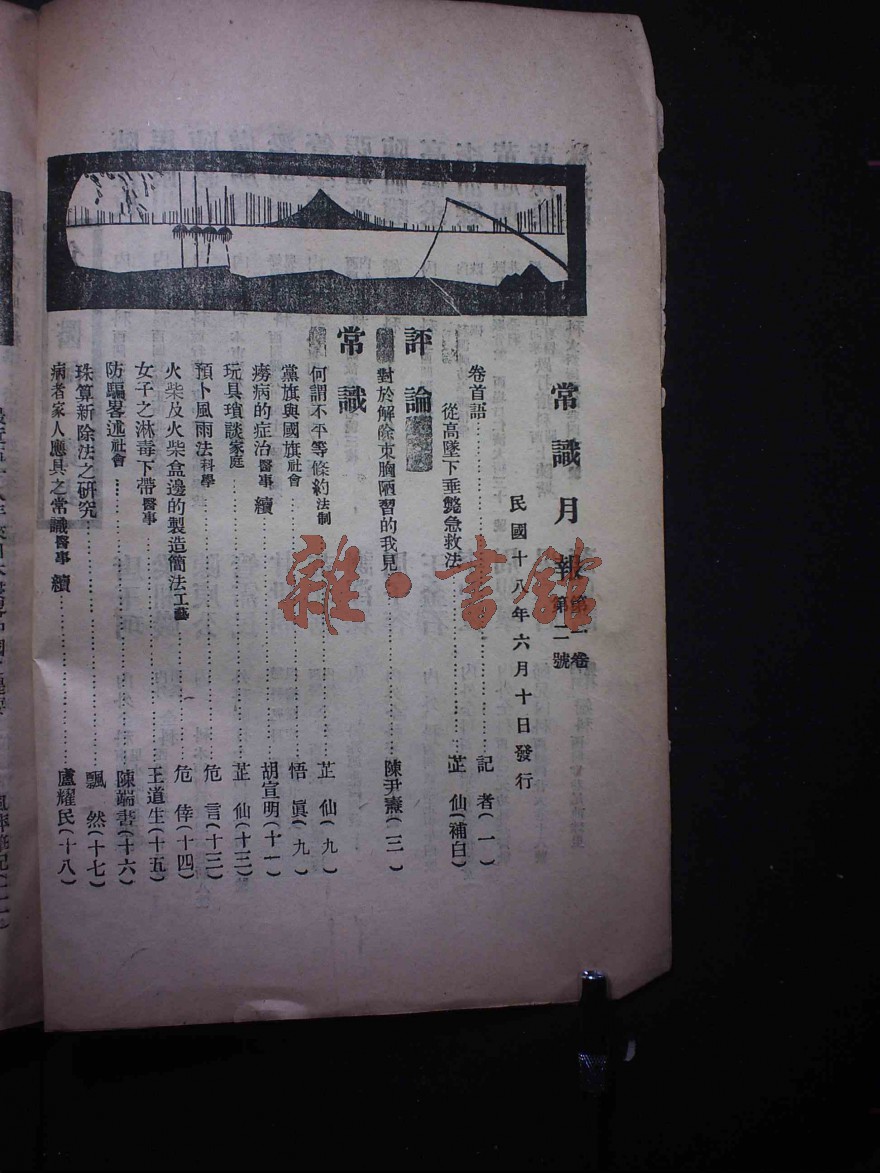 常識月報
第二號
民國十八年六月十日發行
卷首語 記者(一)
從高墜下垂斃急救法 芷仙(補白)
評論
對於解除束胸陋習的我見 陳尹憲(三)
常識
何謂不平等條約法制 芷仙(九)
黨旗與國旗社會 悟眞(九)
癆病的症治醫事 續 胡宣明(十一)
玩具瑣談家庭 芷仙(十三)
預卜風雨法科學 危言(十三)
火柴及火柴盒邊的製造簡法工藝 危倖(十四)
女子之淋毒下帶醫事 王道生(十五)
防騙畧述社會 陳端書(十六)
珠算新除法之研究 飄然(十七)
病者家人應具之常識醫事 續 盧耀民(十八)
雜·書館